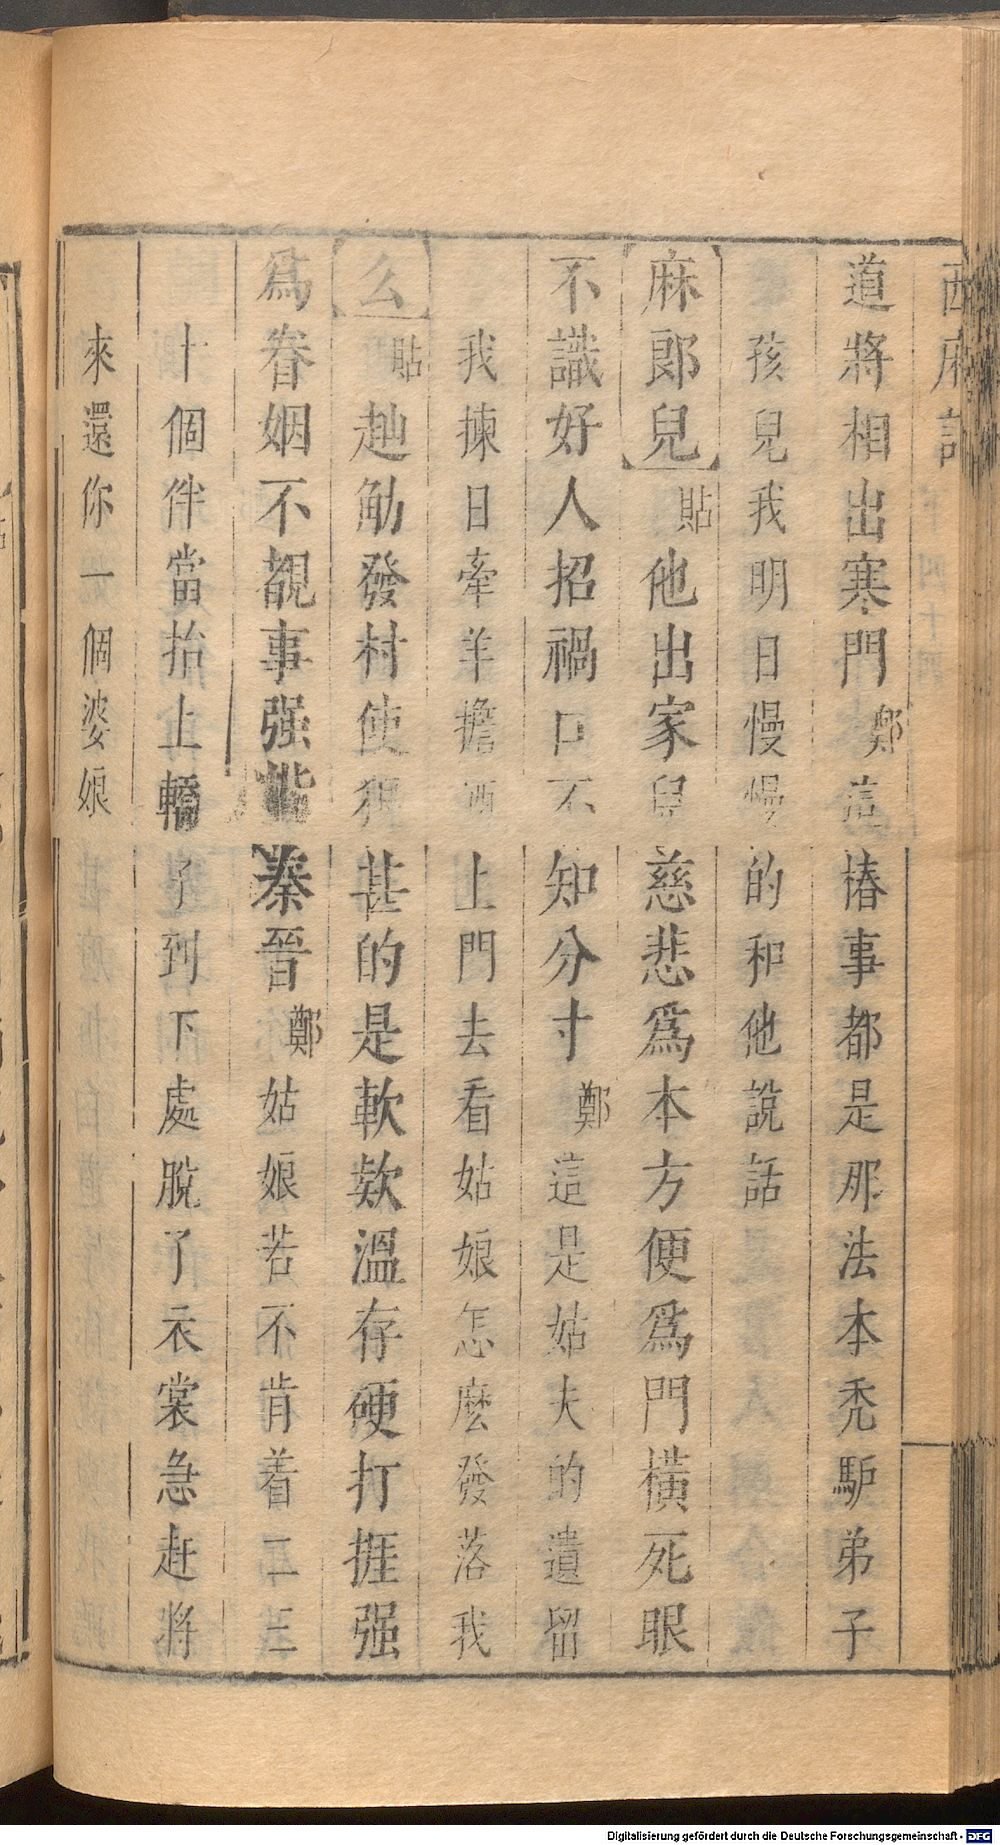 道將相出寒門鄭這樁事都是那法本禿驢弟子
孩兒我明日慢慢的和他說話
麻郎兒貼他出家兒慈悲爲本方便爲門橫死眼
不識好人招禍口不知分寸鄭這是姑夫的遺留
我揀日牽羊擔酒上門去看姑娘怎麼發落我
么貼訕觔發村使狠甚的是軟欵溫存硬打捱强
爲眷姻不覩事强諧秦晉鄭姑娘若不肯着二三
十個伴當抬上轎子到下處脫了衣裳急赶將
來還你一個婆娘
Digitalisierung gefördert durch die Deutsche Forschungsgemeinschaft - DFG